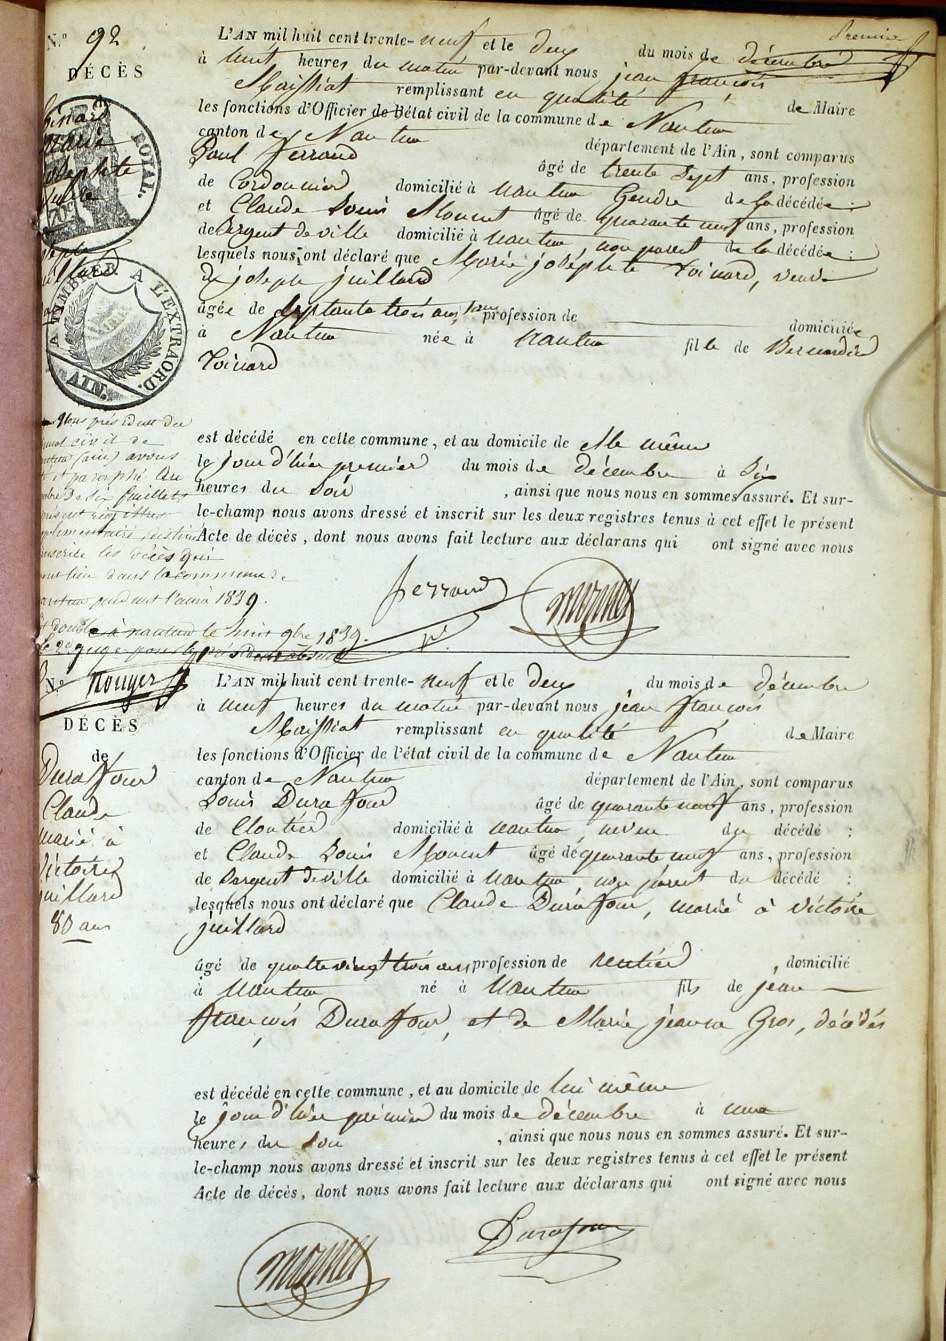 Premier
N.° 92
DÉCÈS
Marie
Josephte
ROYAL.
A TIMBRER A L'EXTRAORD.
AIN.
L'AN mil huit cent trente-neuf et le deux du mois de décembre
à neuf heures du matin par-devant nous jean françois
Maissiat remplissant en qualité de Maire
les fonctions d'Officier de l'état civil de la commune de Nantua
canton de Nantua département de l'Ain, sont comparus
Paul Ferrand âgé de trente sept ans, profession
de Cordonnier domicilié à nantua Gendre de la décédée :
et Claude Louis Monnet âgé de quarante neuf ans, profession
de Sergent de ville domicilié à nantua, non parent de la décédée :
lesquels nous ont déclaré que Marie josephte Voinard, veuve
de joseph juillard
âgée de septante trois ans, sans profession de domiciliée
à Nantua née à nantua fille de Bernardin
Voinard
est décédé en cette commune, et au domicile de elle même
le jour d'hier premier du mois de décembre à Six
heures du soir , ainsi que nous nous en sommes assuré. Et sur-
le-champ nous avons dressé et inscrit sur les deux registres tenus à cet effet le présent
Acte de décès, dont nous avons fait lecture aux déclarans qui ont signé avec nous
Nous président du
civil de
(ain) avons
et paraphé au
de six feuillets
les décès qui
lieu dans la commune de
pendant l'année 1839.
à nantua le huit 9bre 1839.
Ferrand
Monnet
N.°
DÉCÈS
de
Duraffour
Claude
marié à
Victoire
juillard
80 ans
L'AN mil huit cent trente-neuf et le deux du mois de décembre
à neuf heures du matin par-devant nous jean françois
Maissiat remplissant en qualité de Maire
les fonctions d'Officier de l'état civil de la commune de Nantua
canton de Nantua département de l'Ain, sont comparus
Louis Duraffour âgé de quarante neuf ans, profession
de Cloutier domicilié à nantua, neveu du décédé ;
et Claude Louis Monnet âgé de quarante neuf ans, profession
de Sergent de ville domicilié à nantua non parent du décédé :
lesquels nous ont déclaré que Claude Duraffour, marié à victoire
juillard
âgé de quatre vingt trois ans profession de rentier , domicilié
à nantua né à Nantua fils de jean
françois Duraffour, et de Marie jeanne Gros, décédés
est décédé en cette commune, et au domicile de lui même
le jour d'hier premier du mois de décembre à une
heures du soir , ainsi que nous nous en sommes assuré. Et sur-
le-champ nous avons dressé et inscrit sur les deux registres tenus à cet effet le présent
Acte de décès, dont nous avons fait lecture aux déclarans qui ont signé avec nous
Monnet
Duraffour